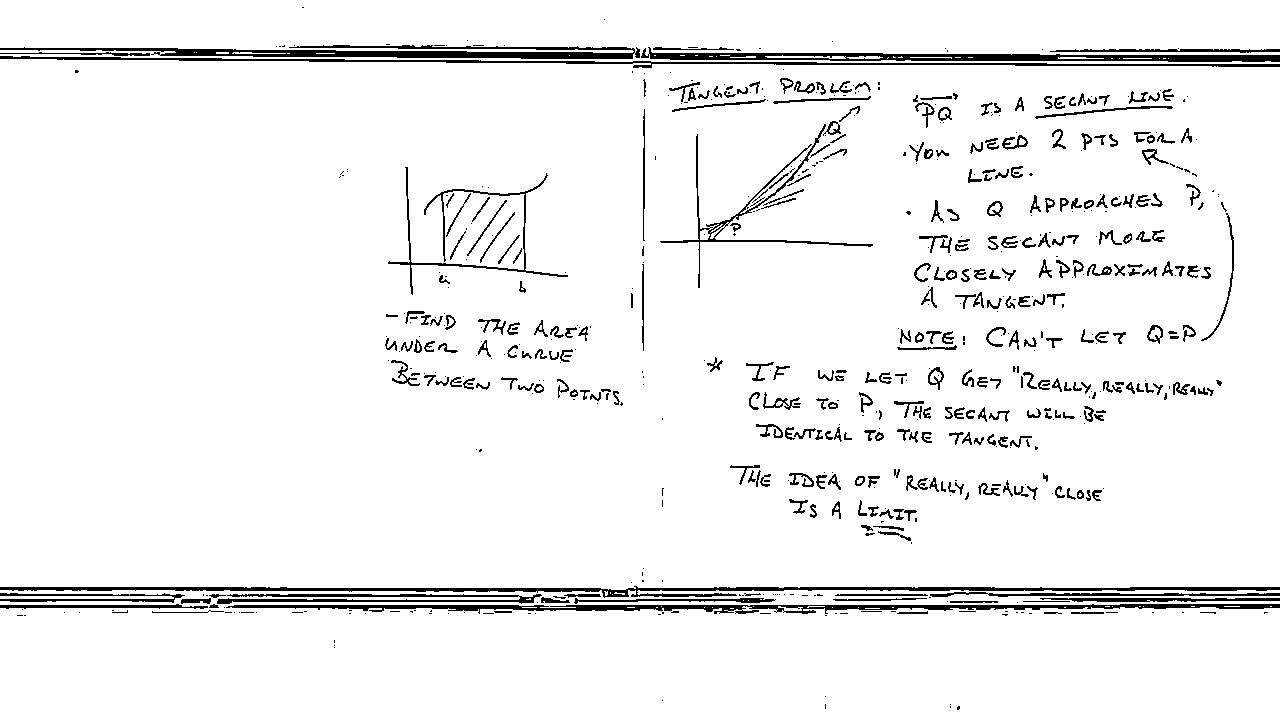 a b
-FIND THE AREA
UNDER A CURVE
BETWEEN TWO POINTS.
TANGENT PROBLEM:
Q
P
PQ IS A SECANT LINE.
·YOU NEED 2 PTS FOR A
LINE.
· AS Q APPROACHES P,
THE SECANT MORE
CLOSELY APPROXIMATES
A TANGENT.
NOTE: CAN'T LET Q=P
* IF WE LET Q GET "REALLY, REALLY, REALLY"
CLOSE TO P, THE SECANT WILL BE
IDENTICAL TO THE TANGENT.
THE IDEA OF "REALLY, REALLY" CLOSE
IS A LIMIT.